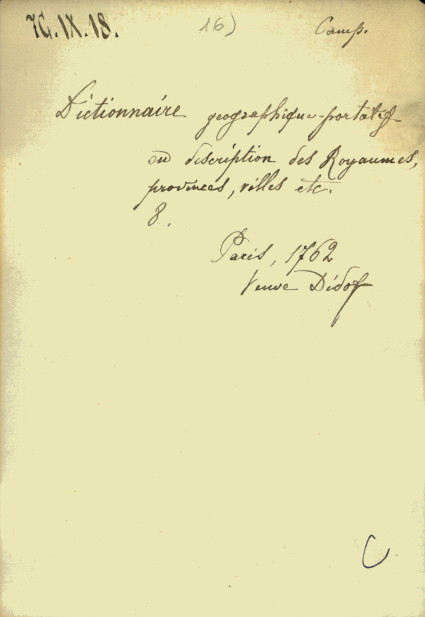 7G.IX.18. 16) Camp.
Dictionnaire geographique-portatif
ou description des Royaumes,
provinces, villes etc.
8.
Paris, 1762
Veuve Didot
C